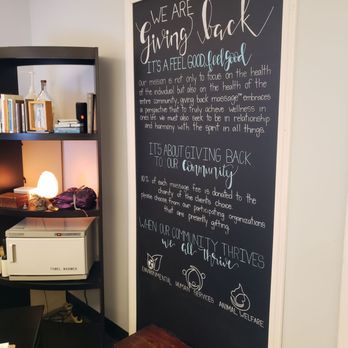 WE ARE
Giving back
IT'S A FEEL GOOD, feel good
Our mission is not only to focus on the health
of the individual but also on the health of the
entire community, giving back massage™ embraces
a perspective that to truly achieve wellness in
ones life we must also seek to be in relationship
and harmony with the spirit in all things.
IT'S ABOUT GIVING BACK
TO OUR Community
10% of each massage fee is donated to the
charity of the clients choice.
please choose from our participating organizations
that are presently gifting.
WHEN OUR COMMUNITY THRIVES
we all thrive
ENVIRONMENTAL
HUMAN SERVICES
ANIMAL WELFARE
TOWEL WARMER